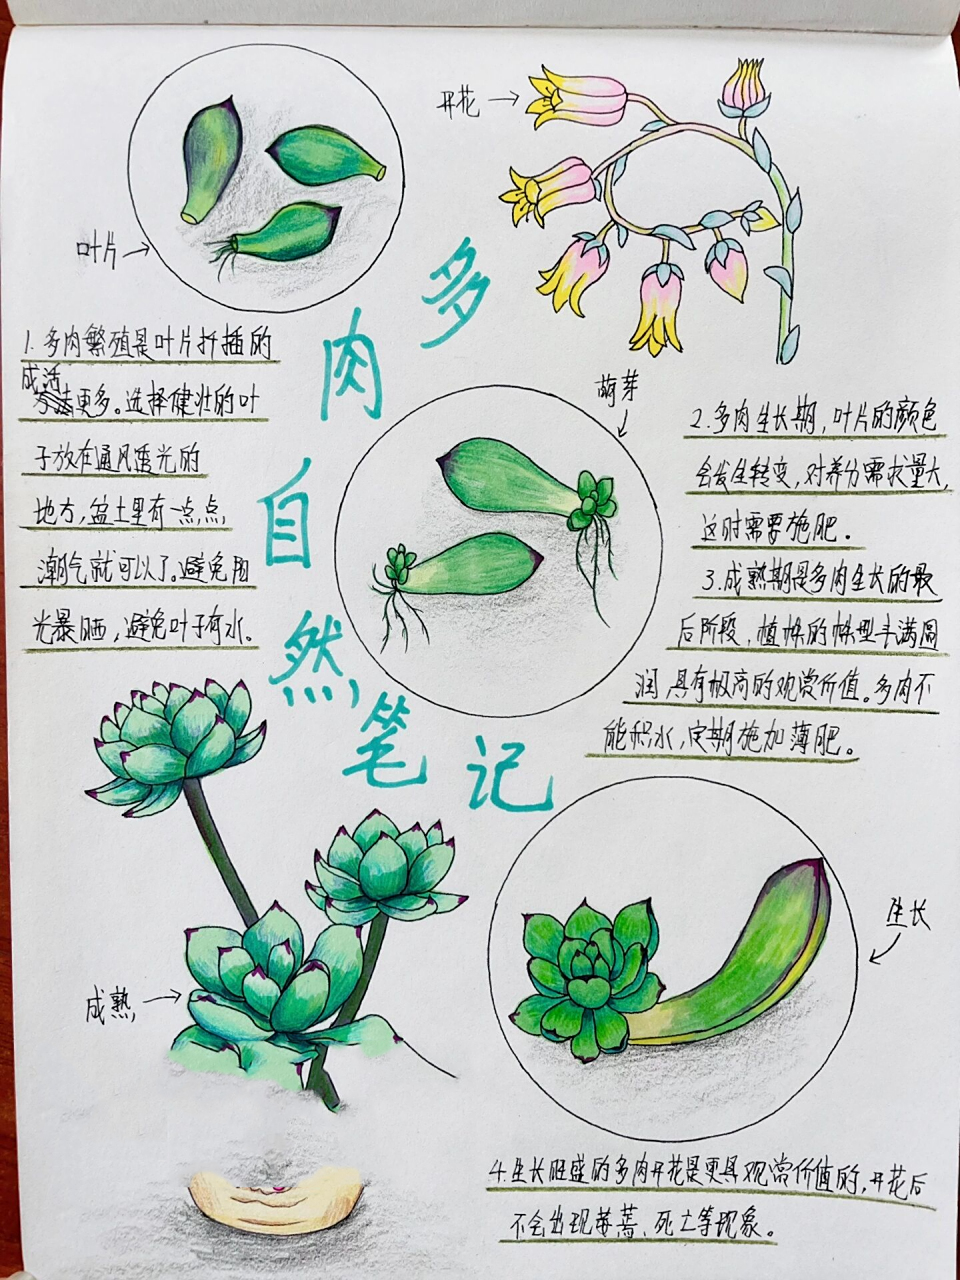 开花
叶片
多肉自然笔记
1.多肉繁殖是叶片扦插的
成活
更多。选择健壮的叶
子放在通风透光的
地方,盆土里有一点点
潮气就可以了。避免阳
光暴晒,避免叶子有水。
萌芽
2.多肉生长期,叶片的颜色
会发生转变,对养分需求量大,
这时需要施肥。
3.成熟期是多肉生长的最
后阶段,植株的株型丰满圆
润,具有极高的观赏价值。多肉不
能积水,定期施加薄肥。
生长
成熟
4.生长旺盛的多肉开花是更具观赏价值的,开花后
不会出现萎蔫、死亡等现象。